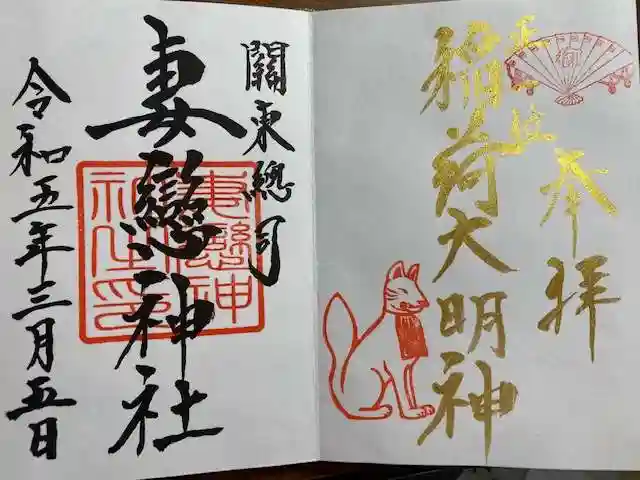 奉拝
正一位
稲荷大明神
御
關東總司
妻戀神社
妻戀神社之印
令和五年三月五日